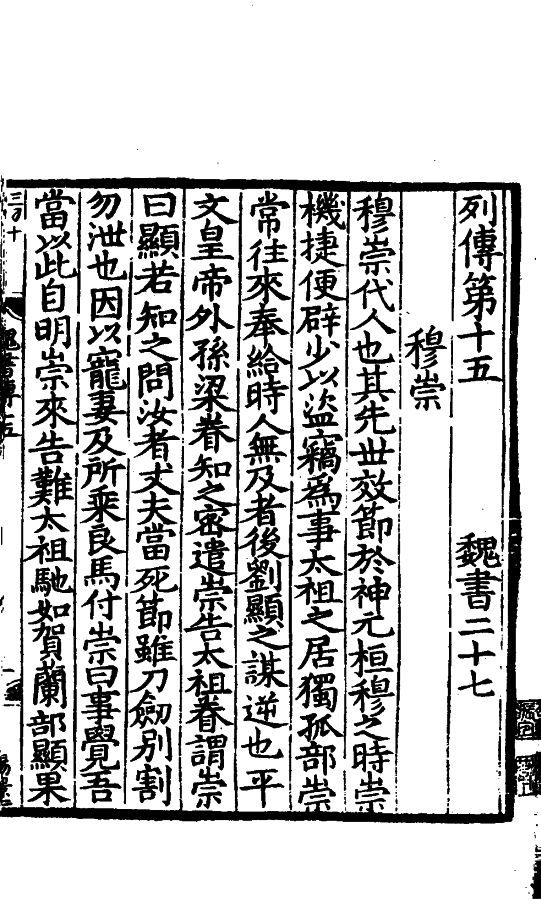 列傳第十五　魏書二十七
穆崇
穆崇代人也其先世效節於神元桓穆之時崇
機捷便辟少以盜竊爲事太祖之居獨孤部崇
常往來奉給時人無及者後劉顯之謀逆也平
文皇帝外孫梁眷知之密遣崇告太祖眷謂崇
曰顯若知之問汝者丈夫當死節雖刀劒別割
勿泄也因以寵妻及所乘良馬付崇曰事覺吾
當以此自明崇來告難太祖馳如賀蘭部顯果
三刀十
魏書傳十五